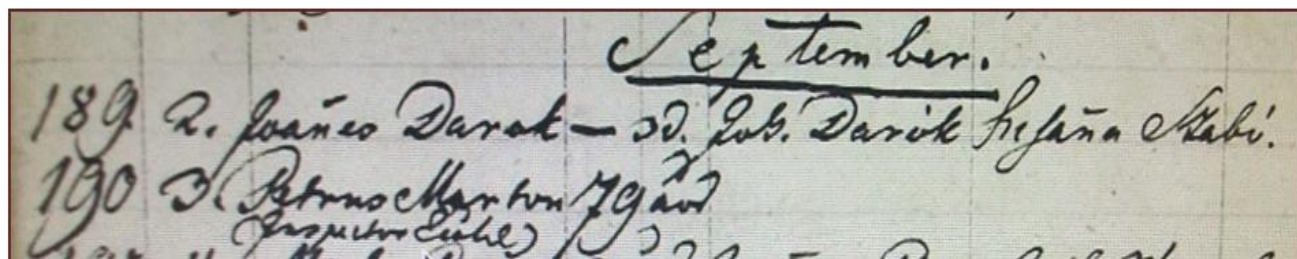 September.
189 2. Joañes Darok — Jos. Darók Susaña Szabó.
190 3. Petrus Marton 79
(Inspector